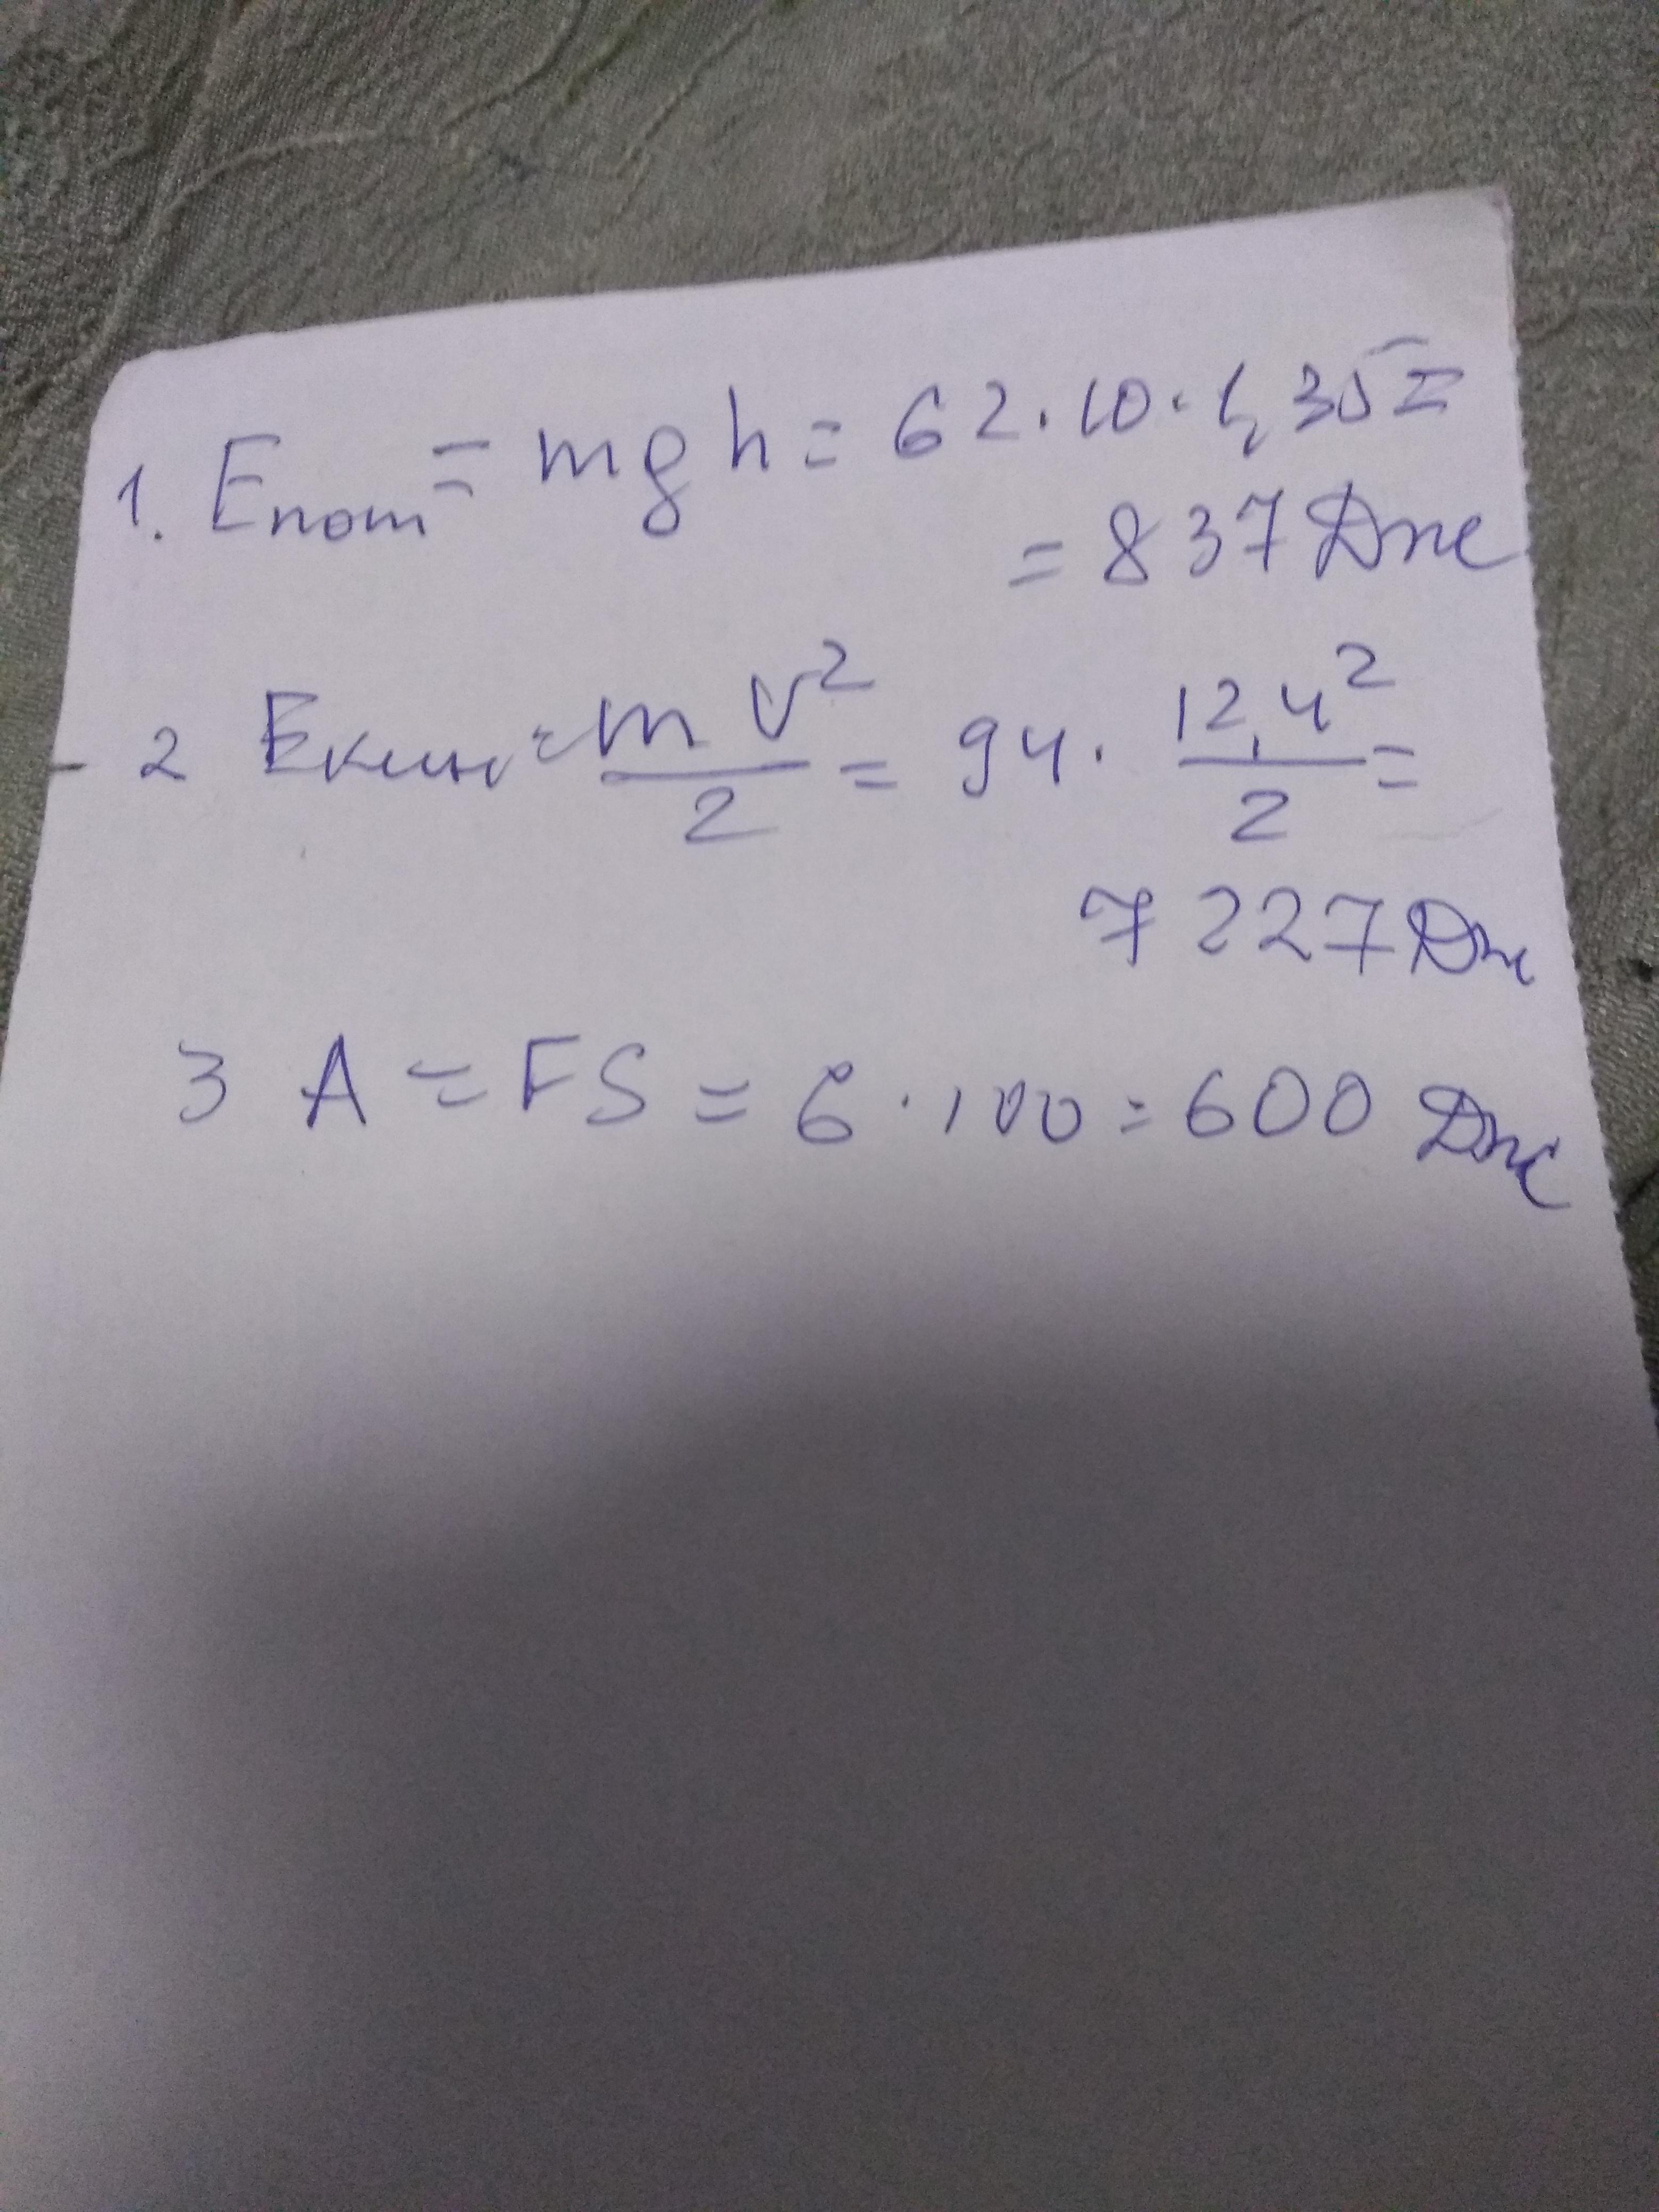 1. Eпот = mgh = 62 · 10 · 1,35 =
= 837 Дж
2 Eкин = mV²/2 = 94 · 12,4²/2 =
7227 Дж
3 A = FS = 6 · 100 = 600 Дж